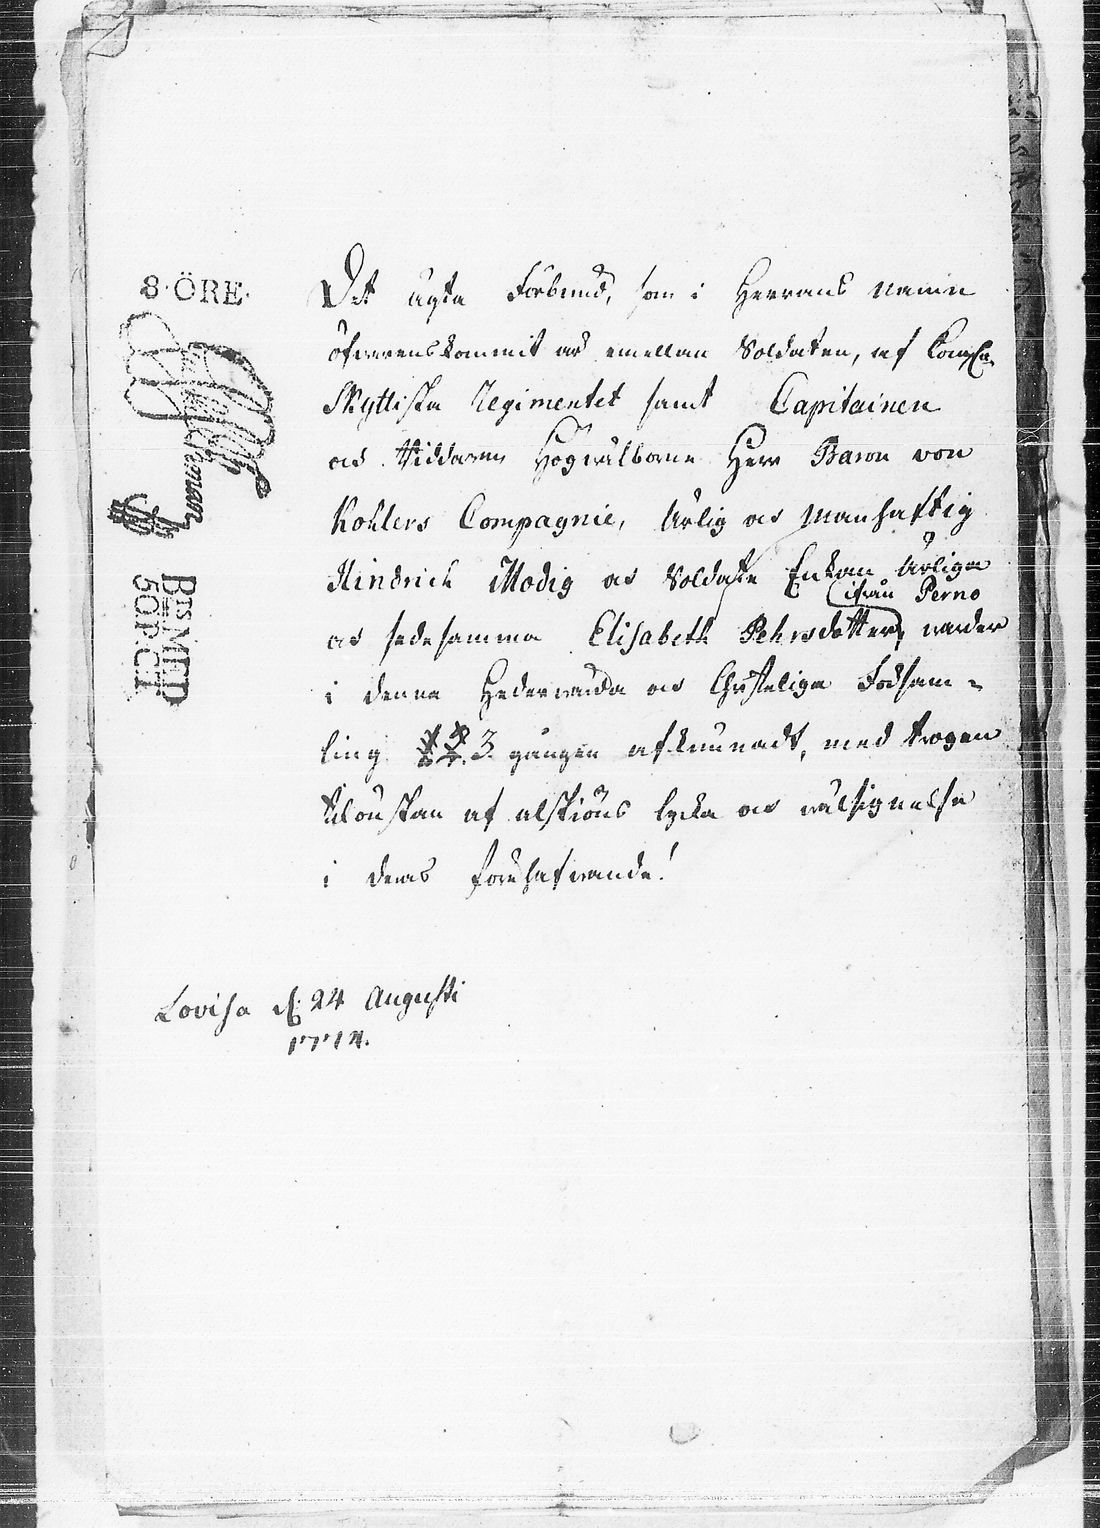 8·ÖRE·
BTSMED
50PCT
Det ägta Förbund, som i Herrans namn
öfwerenskommit är emellan Soldaten, af
Skyttska Regimentet samt Capitainen
och Riddaren Högwälborne Herr Baron von
Kohlers Compagnie, Ärlig och Manhaftig
Hindrich Modig och Soldate Enkan Ärliga
ifrån Perno
och sedesamma Elisabeth Pehrsdotter, warder
i denna Hederwärda och Christeliga Församˍ
ling 3 gången afkunnadt, med trogen
tilönskan af alskiöns lycka och wälsignelse
i deras förehafwande!
Lovisa d. 24 Augusti
1774.